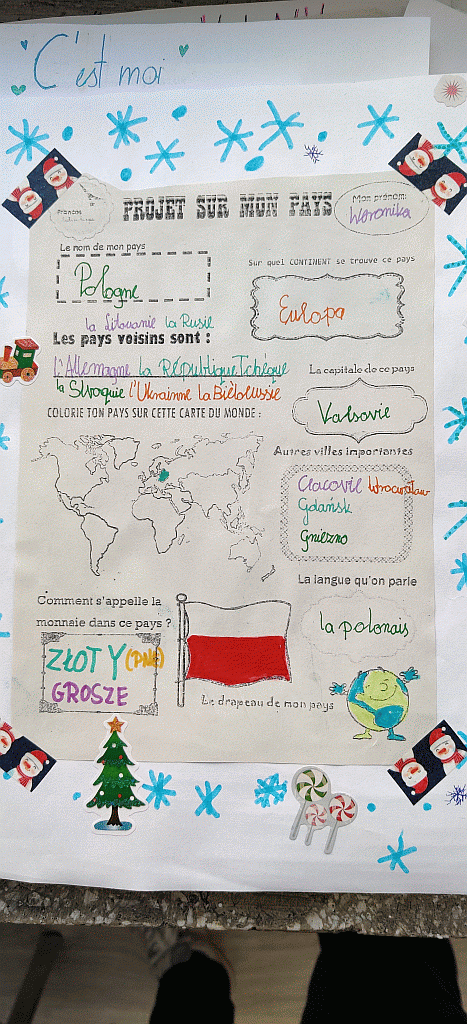 C'est moi
Prénom:
PROJET SUR MON PAYS
Mon prénom:
Weronika
Le nom de mon pays
Pologne
Sur quel CONTINENT se trouve ce pays
Europa
la Lituanie la Rusie
Les pays voisins sont :
l'Allemagne la République Tchéque
la Slvoquie l'Ukrainne la Bièlorussie
COLORIE TON PAYS SUR CETTE CARTE DU MONDE :
La capitale de ce pays
Valsovie
Autres villes importantes
Clacovie Wrocwław
Gdańsk
Gniezno
La langue qu'on parle
la polonais
Comment s'appelle la
monnaie dans ce pays ?
ZŁOTY (PNL)
GROSZE
Le drapeau de mon pays